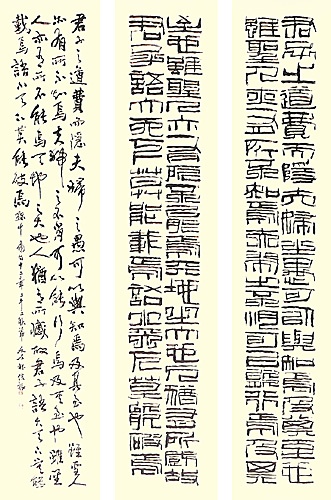 君子之道費而隱夫婦之愚可以與知焉及其至也
雖聖人亦有所不知焉夫婦之不肖可以能行焉及其
至也雖聖人亦有所不能焉天地之大也人猶有所憾故
君子語大天下莫能載焉語小天下莫能破焉
君子之道費而隱夫婦之愚可以與知焉及其至也雖聖人
亦有所不知焉夫婦之不肖可以能行焉及其至也雖聖
人亦有所不能焉天地之大也人猶有所憾故君子語大天下莫能
載焉語小天下莫能破焉